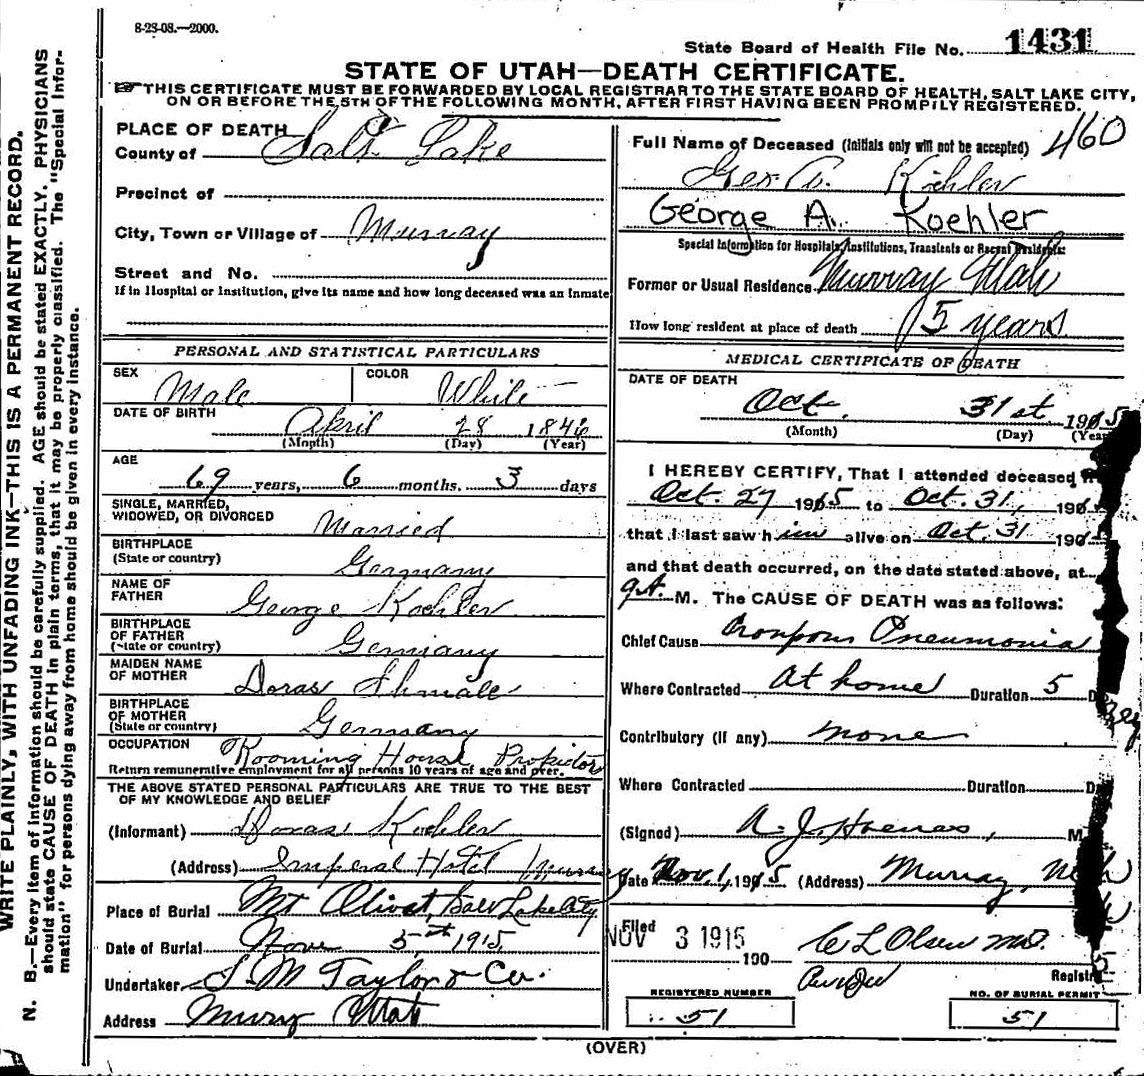 8-23-08.—2000.
State Board of Health File No. 1431
STATE OF UTAH—DEATH CERTIFICATE.
THIS CERTIFICATE MUST BE FORWARDED BY LOCAL REGISTRAR TO THE STATE BOARD OF HEALTH, SALT LAKE CITY,
ON OR BEFORE THE 5TH OF THE FOLLOWING MONTH, AFTER FIRST HAVING BEEN PROMPTLY REGISTERED.
WRITE PLAINLY, WITH UNFADING INK—THIS IS A PERMANENT RECORD.
N. B.—Every item of information should be carefully supplied. AGE should be stated EXACTLY. PHYSICIANS
should state CAUSE OF DEATH in plain terms, that it may be properly classified. The "Special Infor-
mation" for persons dying away from home should be given in every instance.
PLACE OF DEATH
County of Salt Lake
Precinct of
City, Town or Village of Murray
Street and No.
If in Hospital or Institution, give its name and how long deceased was an Inmate
PERSONAL AND STATISTICAL PARTICULARS
SEX Male COLOR White
DATE OF BIRTH April 28 1846
(Month) (Day) (Year)
AGE
69 years, 6 months. 3 days
SINGLE, MARRIED,
WIDOWED, OR DIVORCED Married
BIRTHPLACE
(State or country) Germany
NAME OF
FATHER George Koehler
BIRTHPLACE
OF FATHER
(State or country) Germany
MAIDEN NAME
OF MOTHER Doras
BIRTHPLACE
OF MOTHER
(State or country) Germany
OCCUPATION Rooming House Propietor
Return remunerative employment for all persons 10 years of age and over.
THE ABOVE STATED PERSONAL PARTICULARS ARE TRUE TO THE BEST
OF MY KNOWLEDGE AND BELIEF
(Informant) Doras Koehler
(Address) Imperal Hotel Murray
Place of Burial Mt Olivet, Salt Lake City
Date of Burial Nov 5th 1915
Undertaker Taylor & Co.
Address Murry Utah
460
Full Name of Deceased (Initials only will not be accepted)
Geo. A. Koehler
George A. Koehler
Special Information for Hospitals, Institutions, Transients or Recent Residents:
Former or Usual Residence Murray Utah
How long resident at place of death 15 years
MEDICAL CERTIFICATE OF DEATH
DATE OF DEATH
Oct. 31st 1915
(Month) (Day) (Year
I HEREBY CERTIFY, That I attended deceased
Oct. 27 1915 to Oct. 31, 191
that I last saw him alive on Oct. 31 191
and that death occurred, on the date stated above, at
9 A. M. The CAUSE OF DEATH was as follows:
Chief Cause Pneumonia
Where Contracted At home Duration 5
Contributory (if any) none
Where Contracted Duration
(Signed) A. J. M
Date Nov. 1, 1915 (Address) Murray, Utah
Filed
NOV 3 1915
190 C L Olsen MD.
Registr
REGISTERED NUMBER
51
NO. OF BURIAL PERMIT
51
(OVER)